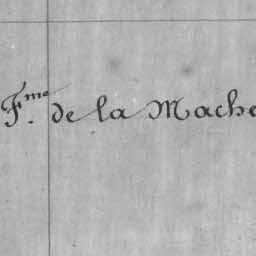 F.me de la Mache